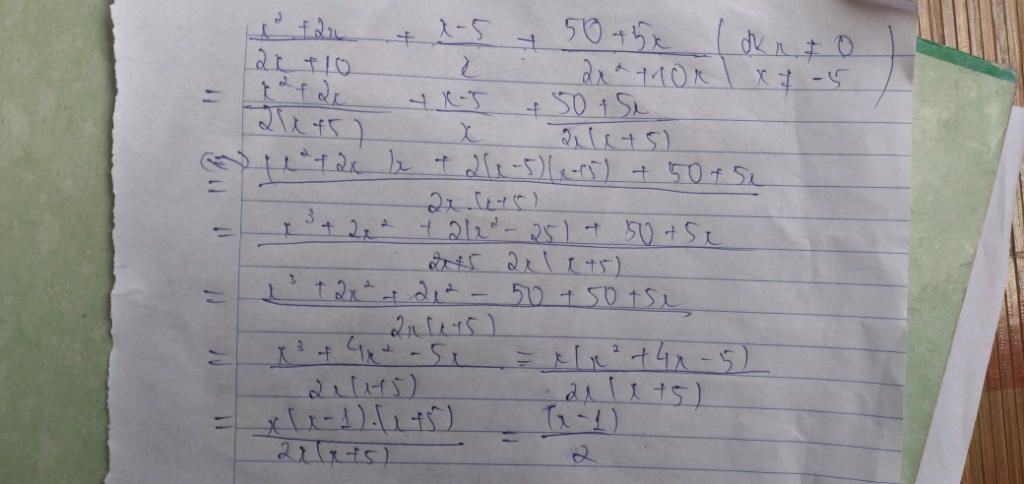 (x² + 2x)/(2x + 10) + (x - 5)/x + (50 + 5x)/(2x² + 10x) ( đk x ≠ 0 x ≠ -5 )
= (x² + 2x)/(2(x + 5)) + (x - 5)/x + (50 + 5x)/(2x(x + 5))
(=) = ((x² + 2x)x + 2(x - 5)(x + 5) + 50 + 5x)/(2x(x + 5))
= (x³ + 2x² + 2(x² - 25) + 50 + 5x)/(2x(x + 5))
= (x³ + 2x² + 2x² - 50 + 50 + 5x)/(2x(x + 5))
= (x³ + 4x² - 5x)/(2x(x + 5)) = x(x² + 4x - 5)/(2x(x + 5))
= x(x - 1).(x + 5)/(2x(x + 5)) = (x - 1)/2